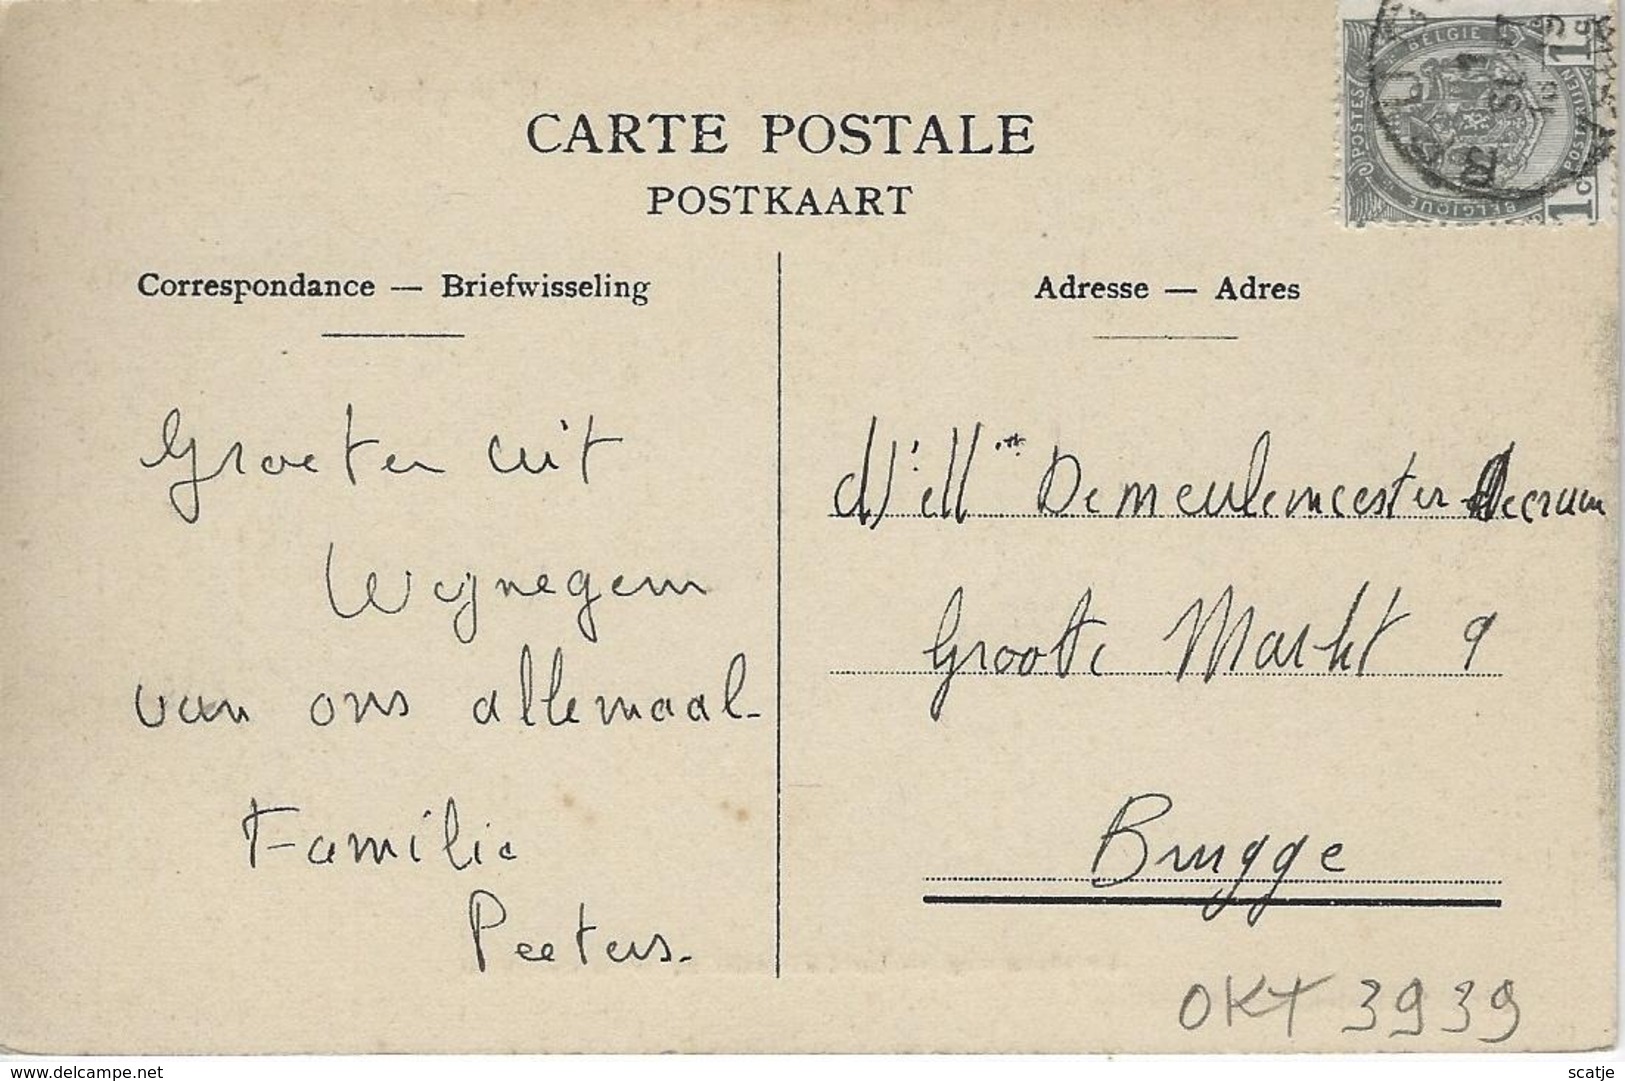 CARTE POSTALE
POSTKAART
Correspondance — Briefwisseling
Groeten uit
Wijnegem
van ons allemaal-
Familie
Peeters.
Adresse — Adres
Demeulemeester
Groote Markt 9
Brugge
OKT 3939
BELGIE
POSTES
POSTERIJEN
BELGIQUE
1c
1c
delcampe.net
scatje